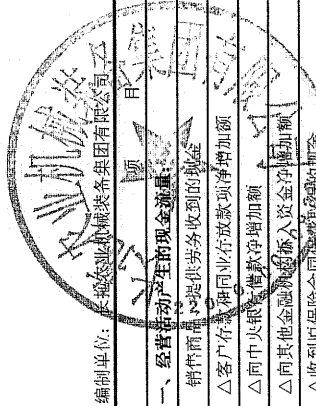 编制单位：长拖农业机械装备集团有限公司
项 目
一、经营活动产生的现金流量：
销售商品、提供劳务收到的现金
△客户存款和同业存放款项净增加额
△向中央银行借款净增加额
△向其他金融机构拆入资金净增加额
△收到原保险合同保费取得的现金
农业机械装备集团